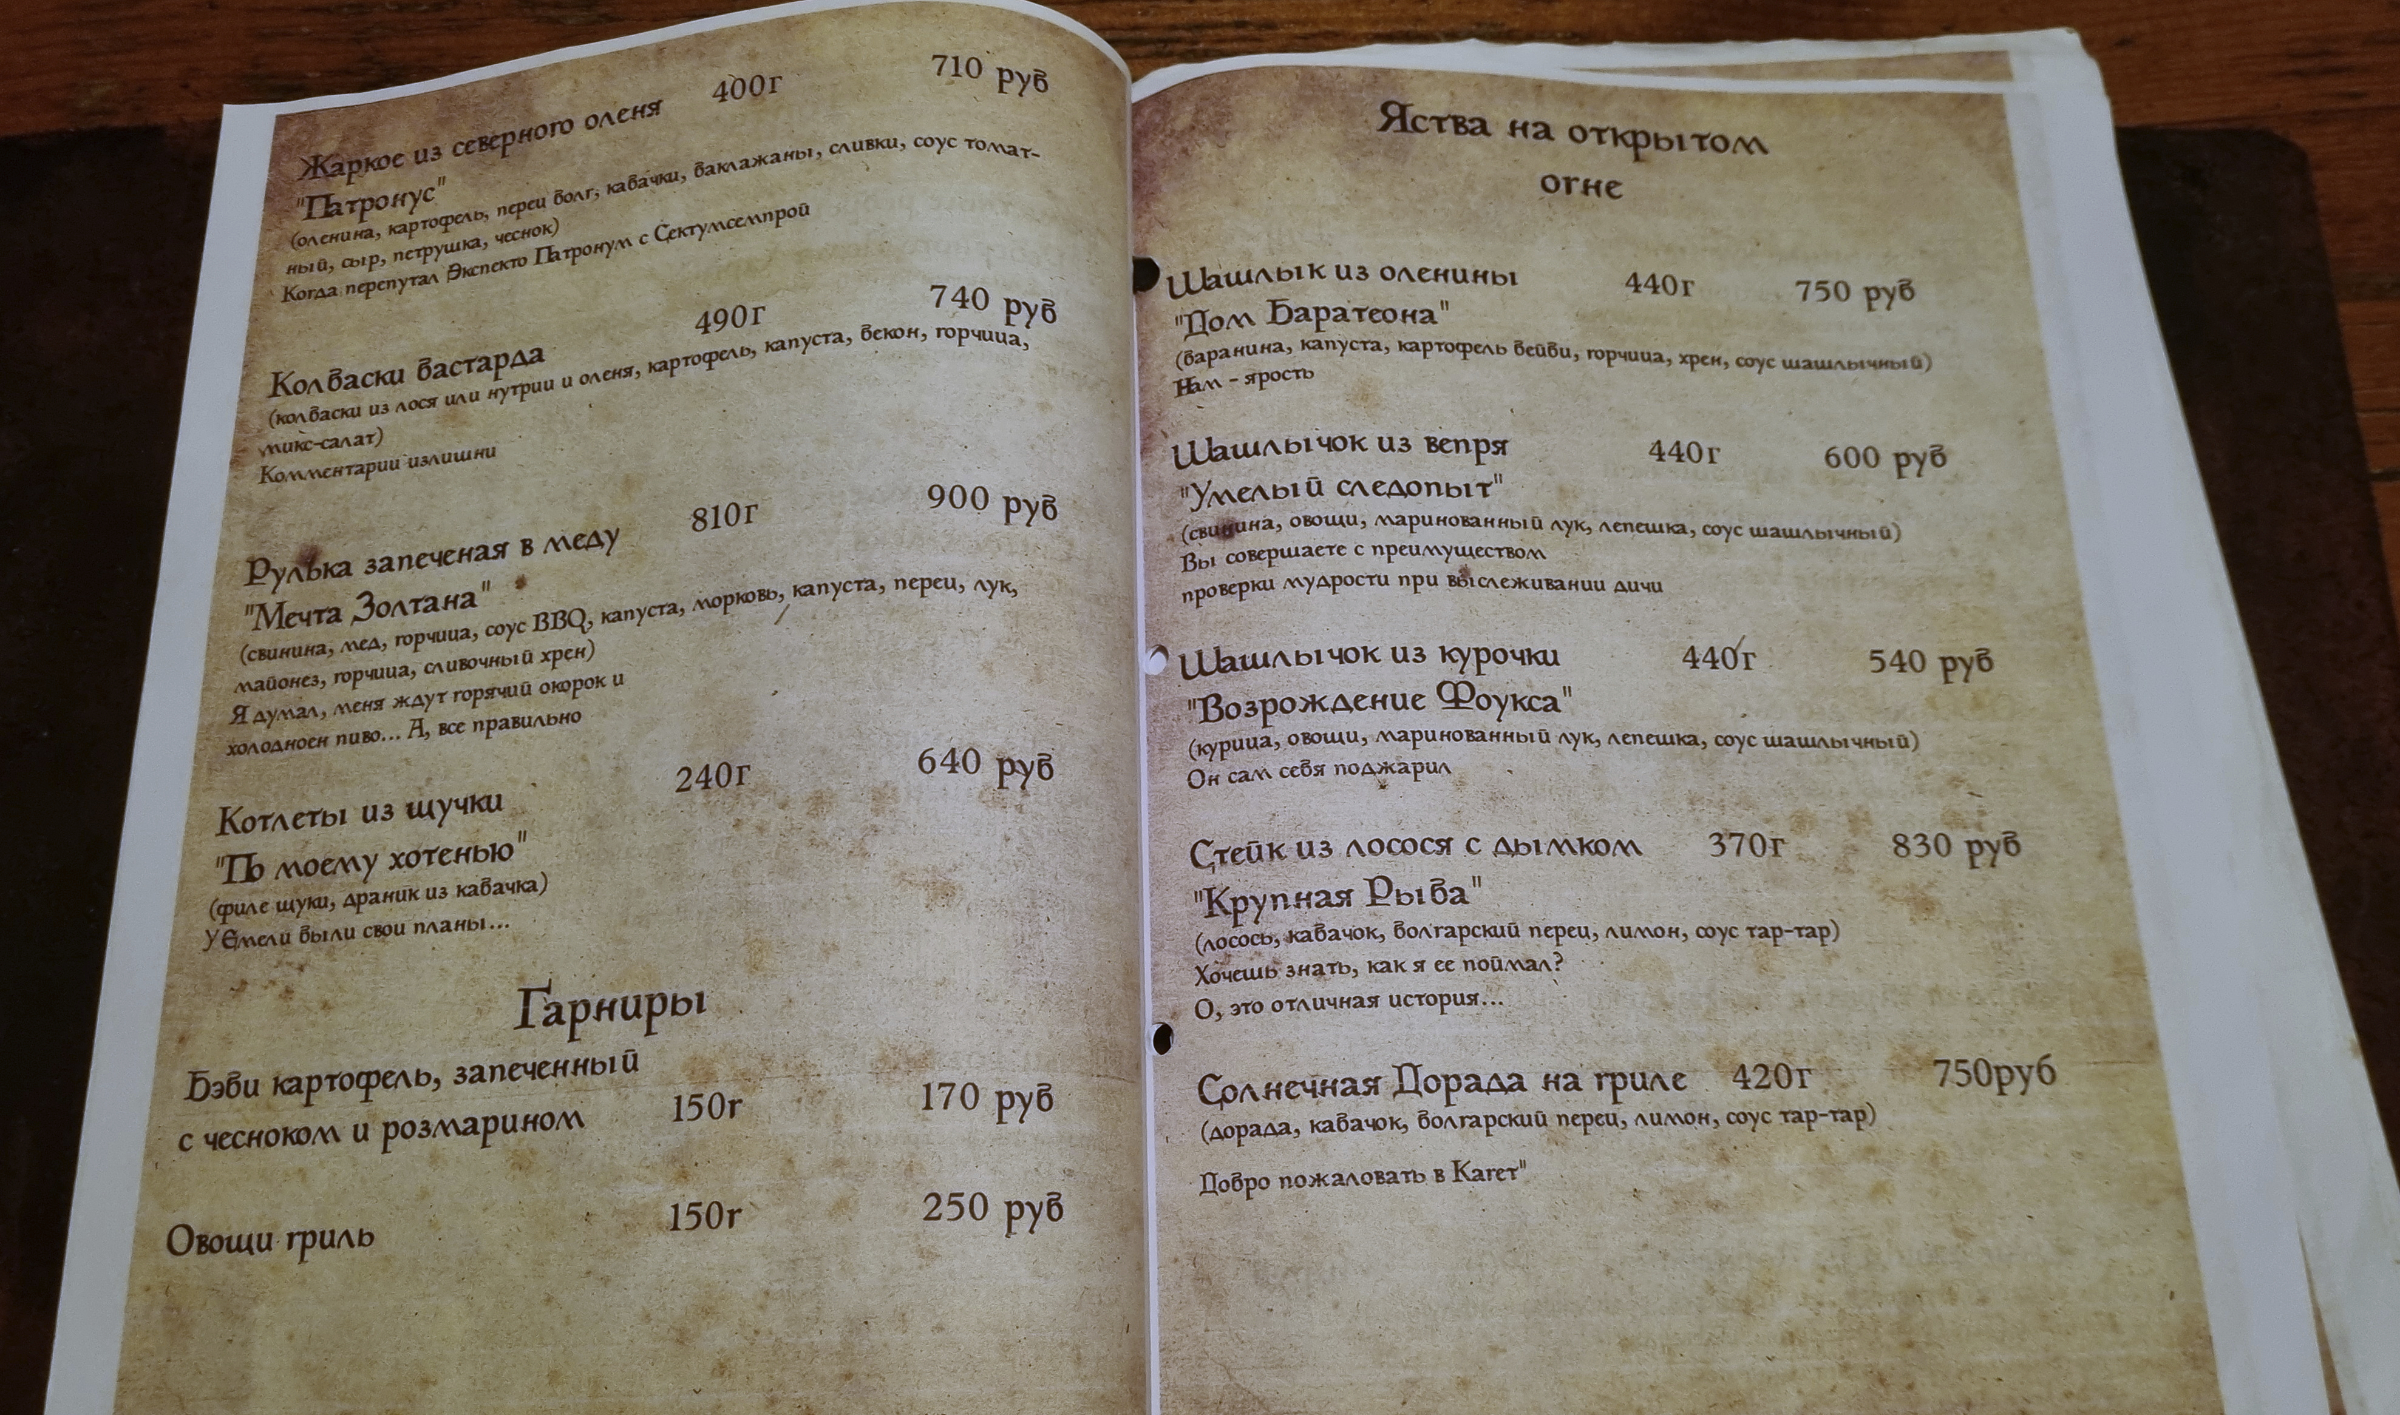 Жаркое из северного оленя 400г 710 руб
"Патронус"
(оленина, картофель, перец болг, кабачки, баклажаны, сливки, соус томат-
ный, сыр, петрушка, чеснок)
Когда перепутал Экспекто Патронум с Сектумсемпрой
Колбаски бастарда 490г 740 руб
(колбаски из лося или нутрии и оленя, картофель, капуста, бекон, горчица,
микс-салат)
Комментарии излишни
Рулька запеченая в меду 810г 900 руб
"Мечта Золтана"
(свинина, мед, горчица, соус BBQ, капуста, морковь, капуста, перец, лук,
майонез, горчица, сливочный хрен)
Я думал, меня ждут горячий окорок и
холодноен пиво... А, все правильно
Котлеты из щучки 240г 640 руб
"По моему хотенью"
(филе щуки, драник из кабачка)
У Емели были свои планы...
Гарниры
Бэби картофель, запеченный
с чесноком и розмарином 150г 170 руб
Овощи гриль 150г 250 руб
Яства на открытом
огне
Шашлык из оленины 440г 750 руб
"Дом Баратеона"
(баранина, капуста, картофель бейби, горчица, хрен, соус шашлычный)
Нам - ярость
Шашлычок из вепря 440г 600 руб
"Умелый следопыт"
(свинина, овощи, маринованный лук, лепешка, соус шашлычный)
Вы совершаете с преимуществом
проверки мудрости при выслеживании дичи
Шашлычок из курочки 440г 540 руб
"Возрождение Фоукса"
(курица, овощи, маринованный лук, лепешка, соус шашлычный)
Он сам себя поджарил
Стейк из лосося с дымком 370г 830 руб
"Крупная Рыба"
(лосось, кабачок, болгарский перец, лимон, соус тар-тар)
Хочешь знать, как я ее поймал?
О, это отличная история...
Солнечная Дорада на гриле 420г 750руб
(дорада, кабачок, болгарский перец, лимон, соус тар-тар)
Добро пожаловать в Кагет"